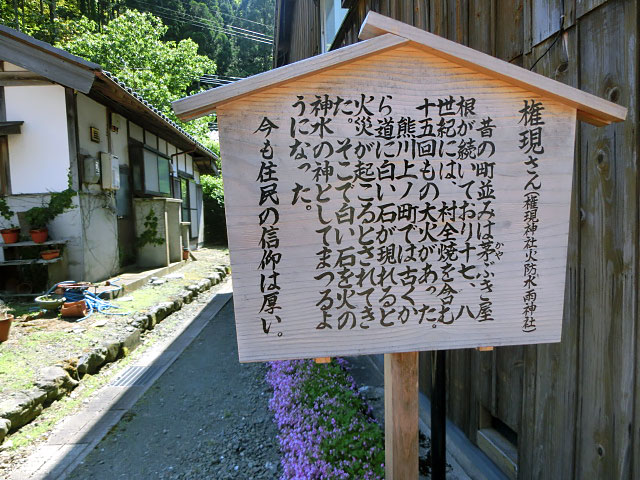 権現さん（権現神社 火防水雨神社）
昔の町並みは茅ぶき屋
かや
根が続いており十七、八
世紀には、村全焼を含む
十五回もの大火があった。
熊川上ノ町では古くか
ら道に白い石が現れると
火災が起こるとされてき
た。そこで白い石を火の
神水の神としてまつるよ
うになった。
今も住民の信仰は厚い。